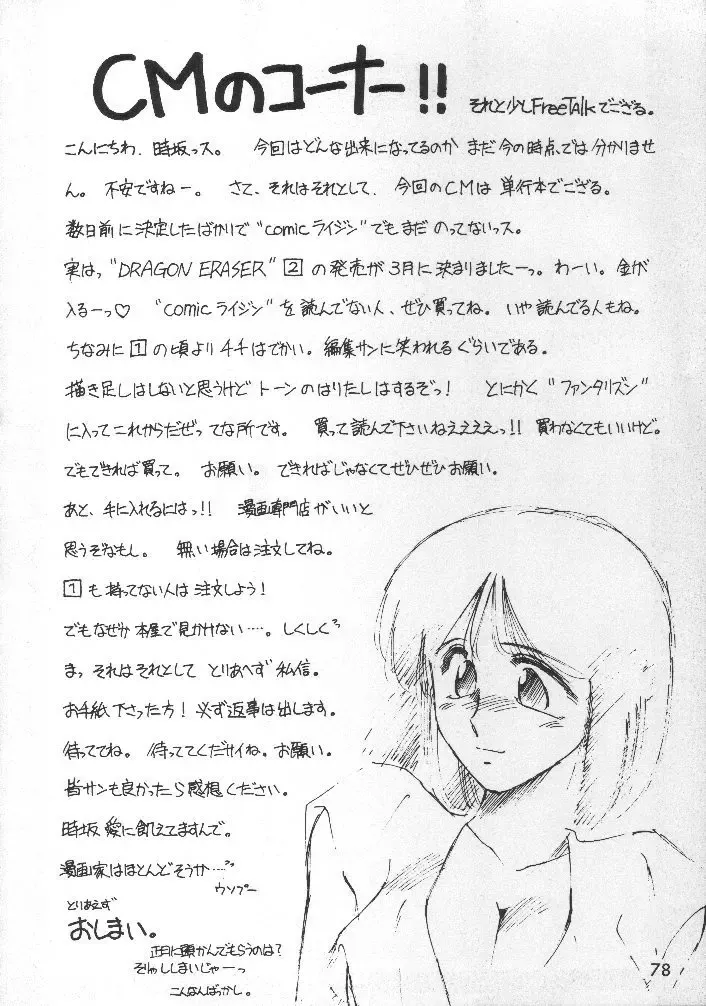 CMのコーナー!!
それと少しFreeTalkでござる。
こんにちわ、時坂っス。 今回はどんな出来になってるのか まだ今の時点では分かりませ
ん。 不安ですねー。 さて、それはそれとして、今回のCMは 単行本でござる。
数日前に決定したばかりで“comicライジン”でもまだ のってないっス。
実はっ“DRAGON ERASER”2の発売が3月に決まりましたーっ。わーい。金が
入るーっ♡ “comicライジン”を読んでない人、ぜひ買ってね。いや読んでる人もね。
ちなみに1の頃よりチチはでかい。編集サンに笑われるぐらいである。
描き足しはしないと思うけど トーンのはりたしはするぞっ! とにかく“ファンタリズン”
に入ってこれからだぜって な所です。 買って読んで下さいねええええっ!! 買わなくてもいいけど。
でもできれば買って。 お願い。 できればじゃなくてぜひぜひお願い。
あと、手に入れるにはっ!! 漫画専門店がいいと
思うぞなもし。 無い場合は注文してね。
1も持ってない人は注文しよう!
でもなぜか 本屋で見かけない…。しくしく
まっ それはそれとして とりあへず私信。
お手紙下さった方! 必ず返事は出します。
待っててね。 待っててくだサイね。お願い。
皆サンも良かったら感想ください。
時坂 愛に飢えてますんで。
漫画家はほとんどそうか…
ウソプー
とりあえず
おしまい。
正月に頭かんでもらうのは?
そりゃししまいじゃーっ
こんなんばっかし。
78